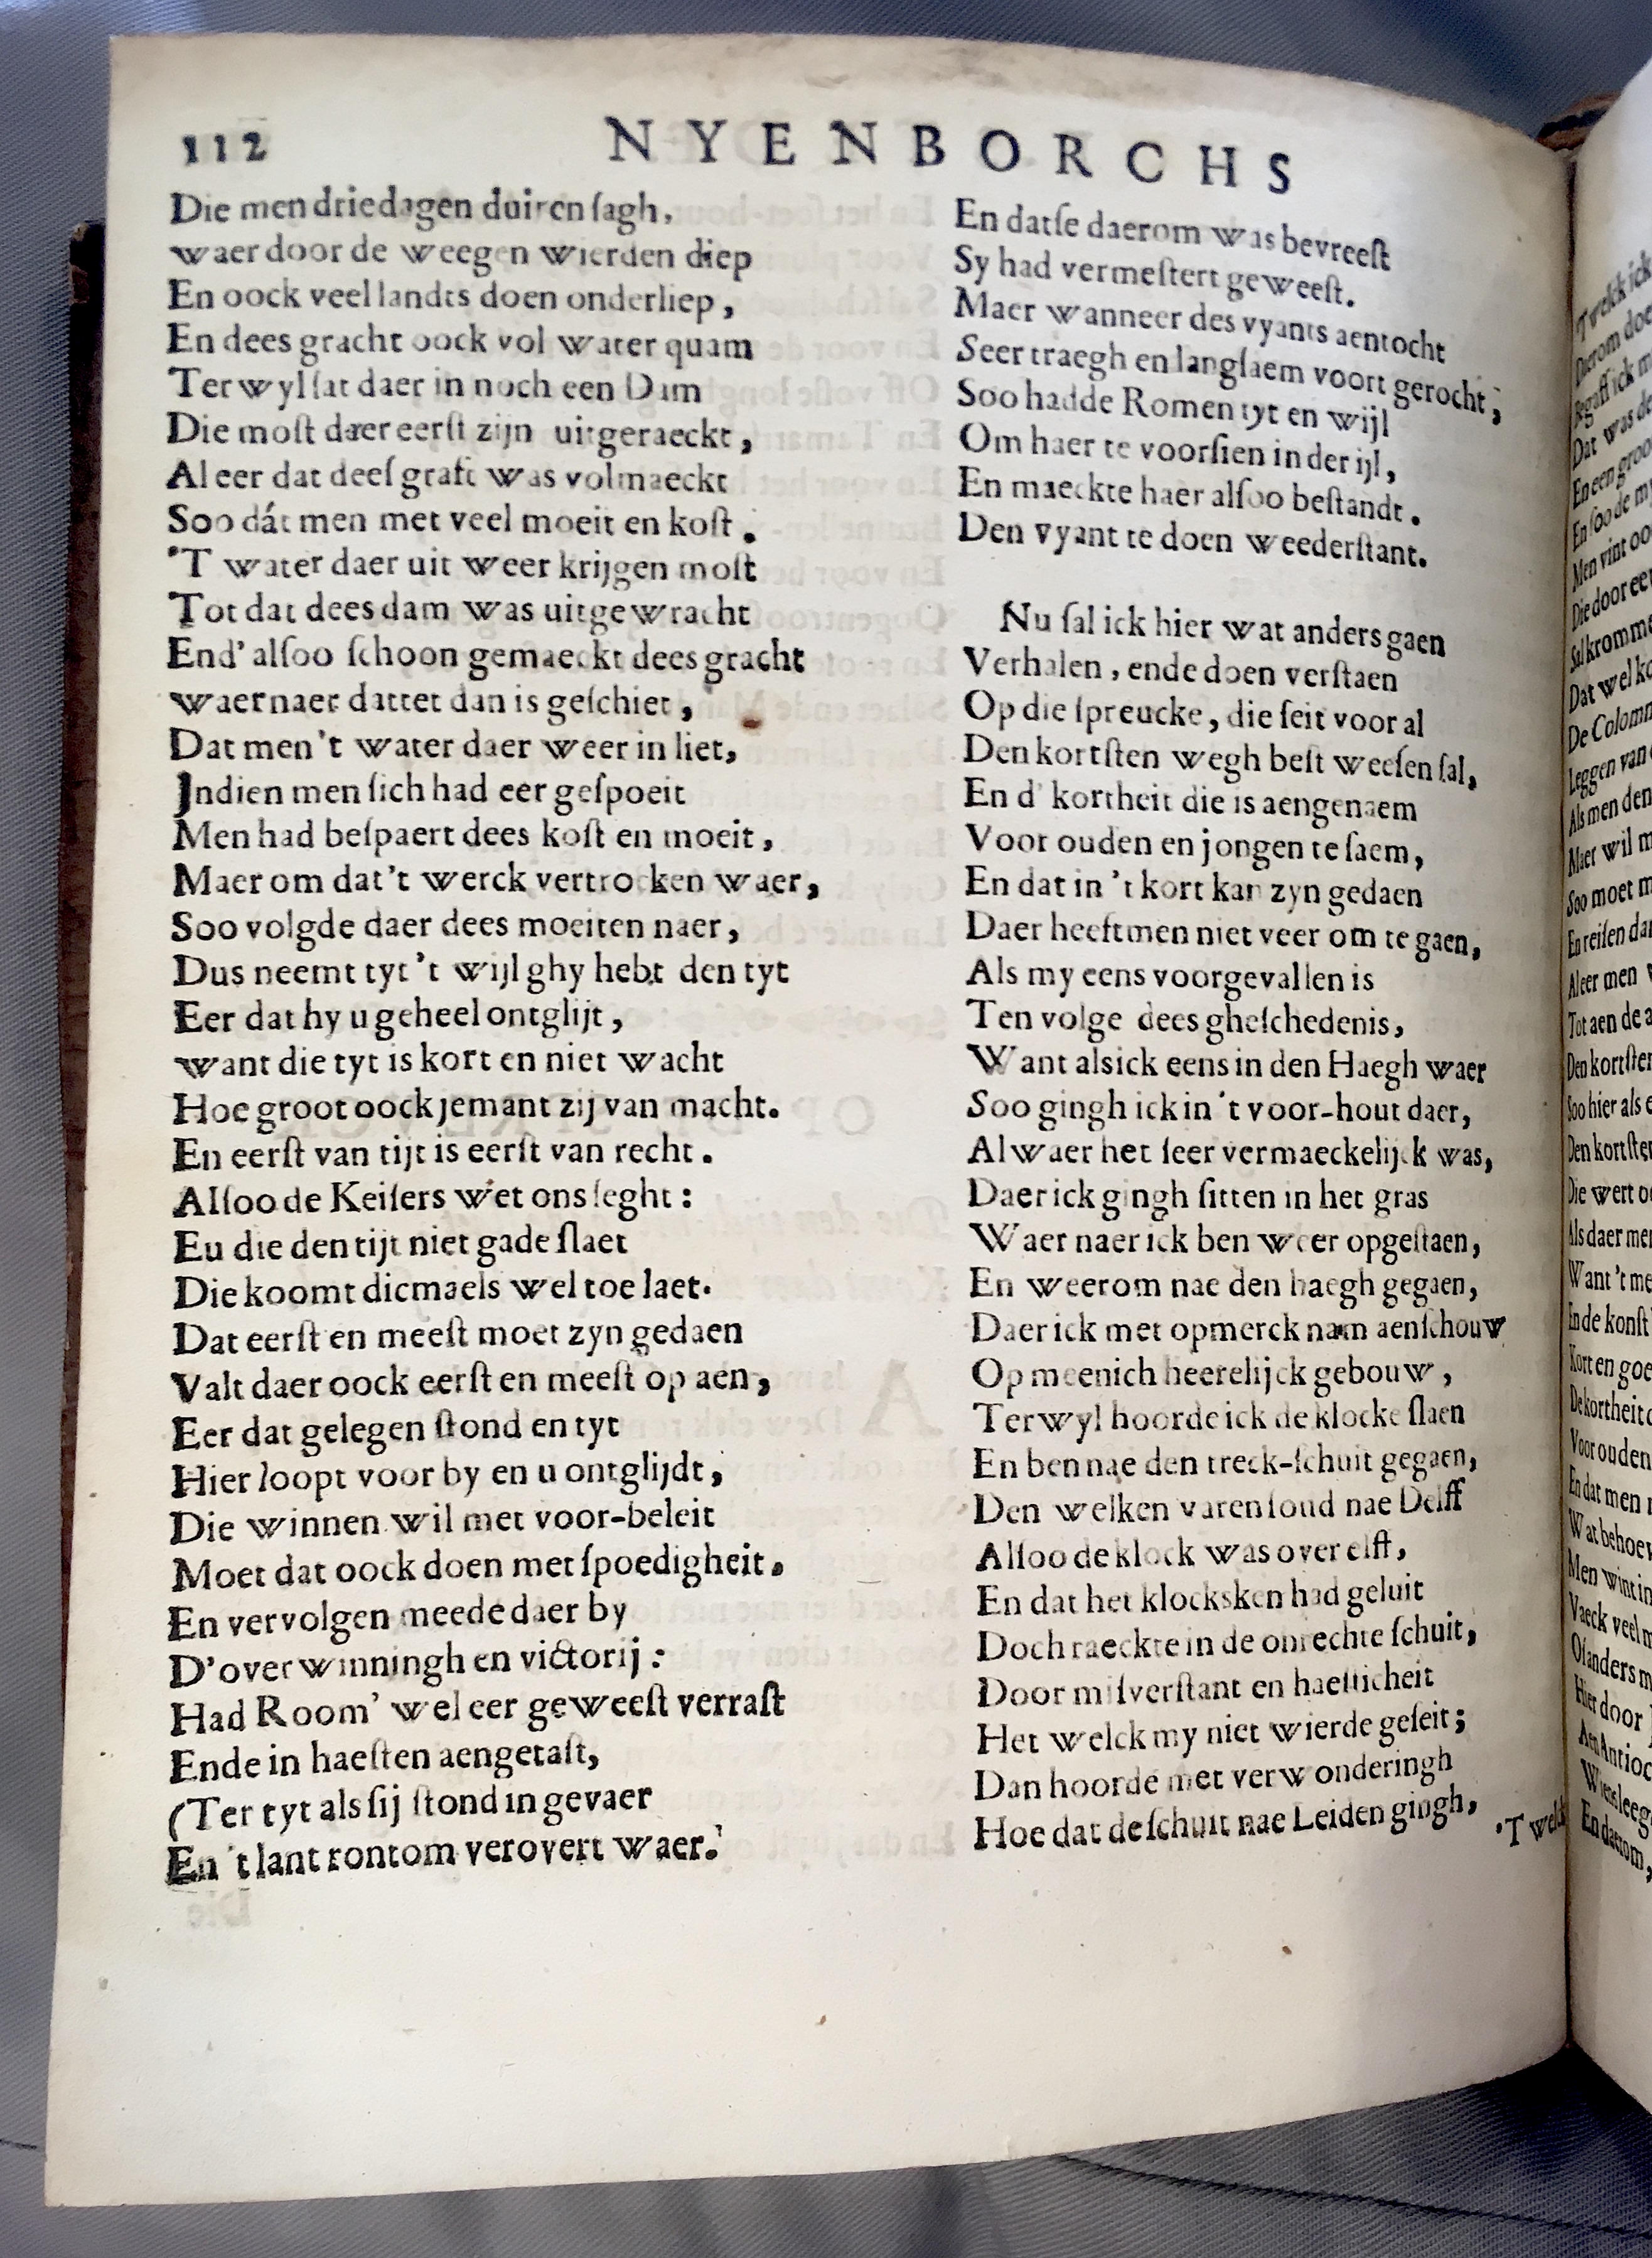 112 NYENBORCHS
Die men driedagen duiren ſagh,
waer door de weegen wierden diep
En oock veel landts doen onderliep,
En dees gracht oock vol water quam
Terwyl ſat daer in noch een Dam
Die moſt daer eerſt zijn uitgeraeckt,
Al eer dat deeſ graft was volmaeckt
Soo dát men met veel moeit en koſt.
'T water daer uit weer krijgen moſt
Tot dat dees dam was uitgewracht
End' alſoo ſchoon gemaeckt dees gracht
waer naer dattet dan is geſchiet,
Dat men 't water daer weer in liet,
Jndien men ſich had eer geſpoeit
Men had beſpaert dees koſt en moeit,
Maer om dat 't werck vertrocken waer,
Soo volgde daer dees moeiten naer,
Dus neemt tyt 't wijl ghy hebt den tyt
Eer dat hy u geheel ontglijt,
want die tyt is kort en niet wacht
Hoe groot oock jemant zij van macht.
En eerſt van tijt is eerſt van recht.
Alſoo de Keiſers wet ons ſeght:
Eu die den tijt niet gade ſlaet
Die koomt dicmaels wel toe laet.
Dat eerſt en meeſt moet zyn gedaen
Valt daer oock eerſt en meeſt op aen,
Eer dat gelegen ſtond en tyt
Hier loopt voor by en u ontglijdt,
Die winnen wil met voor-beleit
Moet dat oock doen met ſpoedigheit.
En vervolgen meede daer by
D'overwinningh en victorij:
Had Room' wel eer geweeſt verraſt
Ende in haeſten aengetaſt,
(Ter tyt als ſij ſtond in gevaer
En 't lant rontom verovert waer.'
En datſe daerom was bevreeſt
Sy had vermeſtert geweeſt.
Maer wanneer des vyants aentocht
Seer traegh en langſaem voort gerocht;
Soo hadde Romen tyt en wijl
Om haer te voorſien in der ijl,
En maeckte haer alſoo beſtandt.
Den vyant te doen weederſtant.
Nu ſal ick hier wat anders gaen
Verhalen, ende doen verſtaen
Op die ſpreucke, die ſeit voor al
Den kortſten wegh beſt weeſen ſal,
En d' kortheit die is aengenaem
Voor ouden en jongen te ſaem,
En dat in 't kort kan zyn gedaen
Daer heeft men niet veer om te gaen,
Als my eens voorgevallen is
Ten volge dees gheſchedenis,
Want als ick eens in den Haegh waer
Soo gingh ick in 't voor-hout daer,
Alwaer het ſeer vermaeckelijck was,
Daer ick gingh ſitten in het gras
Waer naer ick ben weer opgeſtaen,
En weerom nae den haegh gegaen,
Daer ick met opmerck nam aenſchouw
Op meenich heerelijck gebouw,
Terwyl hoorde ick de klocke ſlaen
En ben nae den treck-ſchuit gegaen,
Den welken varen ſoud nae Delff
Alſoo de klock was over elff,
En dat het klocksken had geluit
Doch raeckte in de onrechte ſchuit,
Door miſverſtant en haeſticheit
Het welck my niet wierde geſeit;
Dan hoorde met verwonderingh
Hoe dat de ſchuit nae Leiden gingh,
'T welck
'T welck ick
Begaff ick
Dat was de
En een groo
En ſoo de my
Men vint oo
Die door ee
Sal kromme
Dat wel ko
De Colomn
Leggen van
Als men den
Maer wil m
Soo moet m
En reiſen da
Aleer men
Tot aen de a
Den kortſten
Soo hier als e
Den kortſten
Die wert o
Als daer men
Want 't me
En de konſt
Kort en goe
De kortheit
Voor ouden
En dat men
Wat behoev
Men wint in
Vaeck veel m
Of anders m
Hier door
Aen Antioc
En